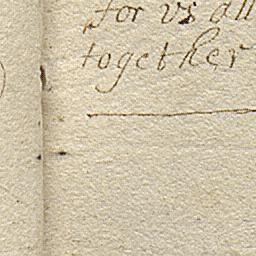 for vs all
together